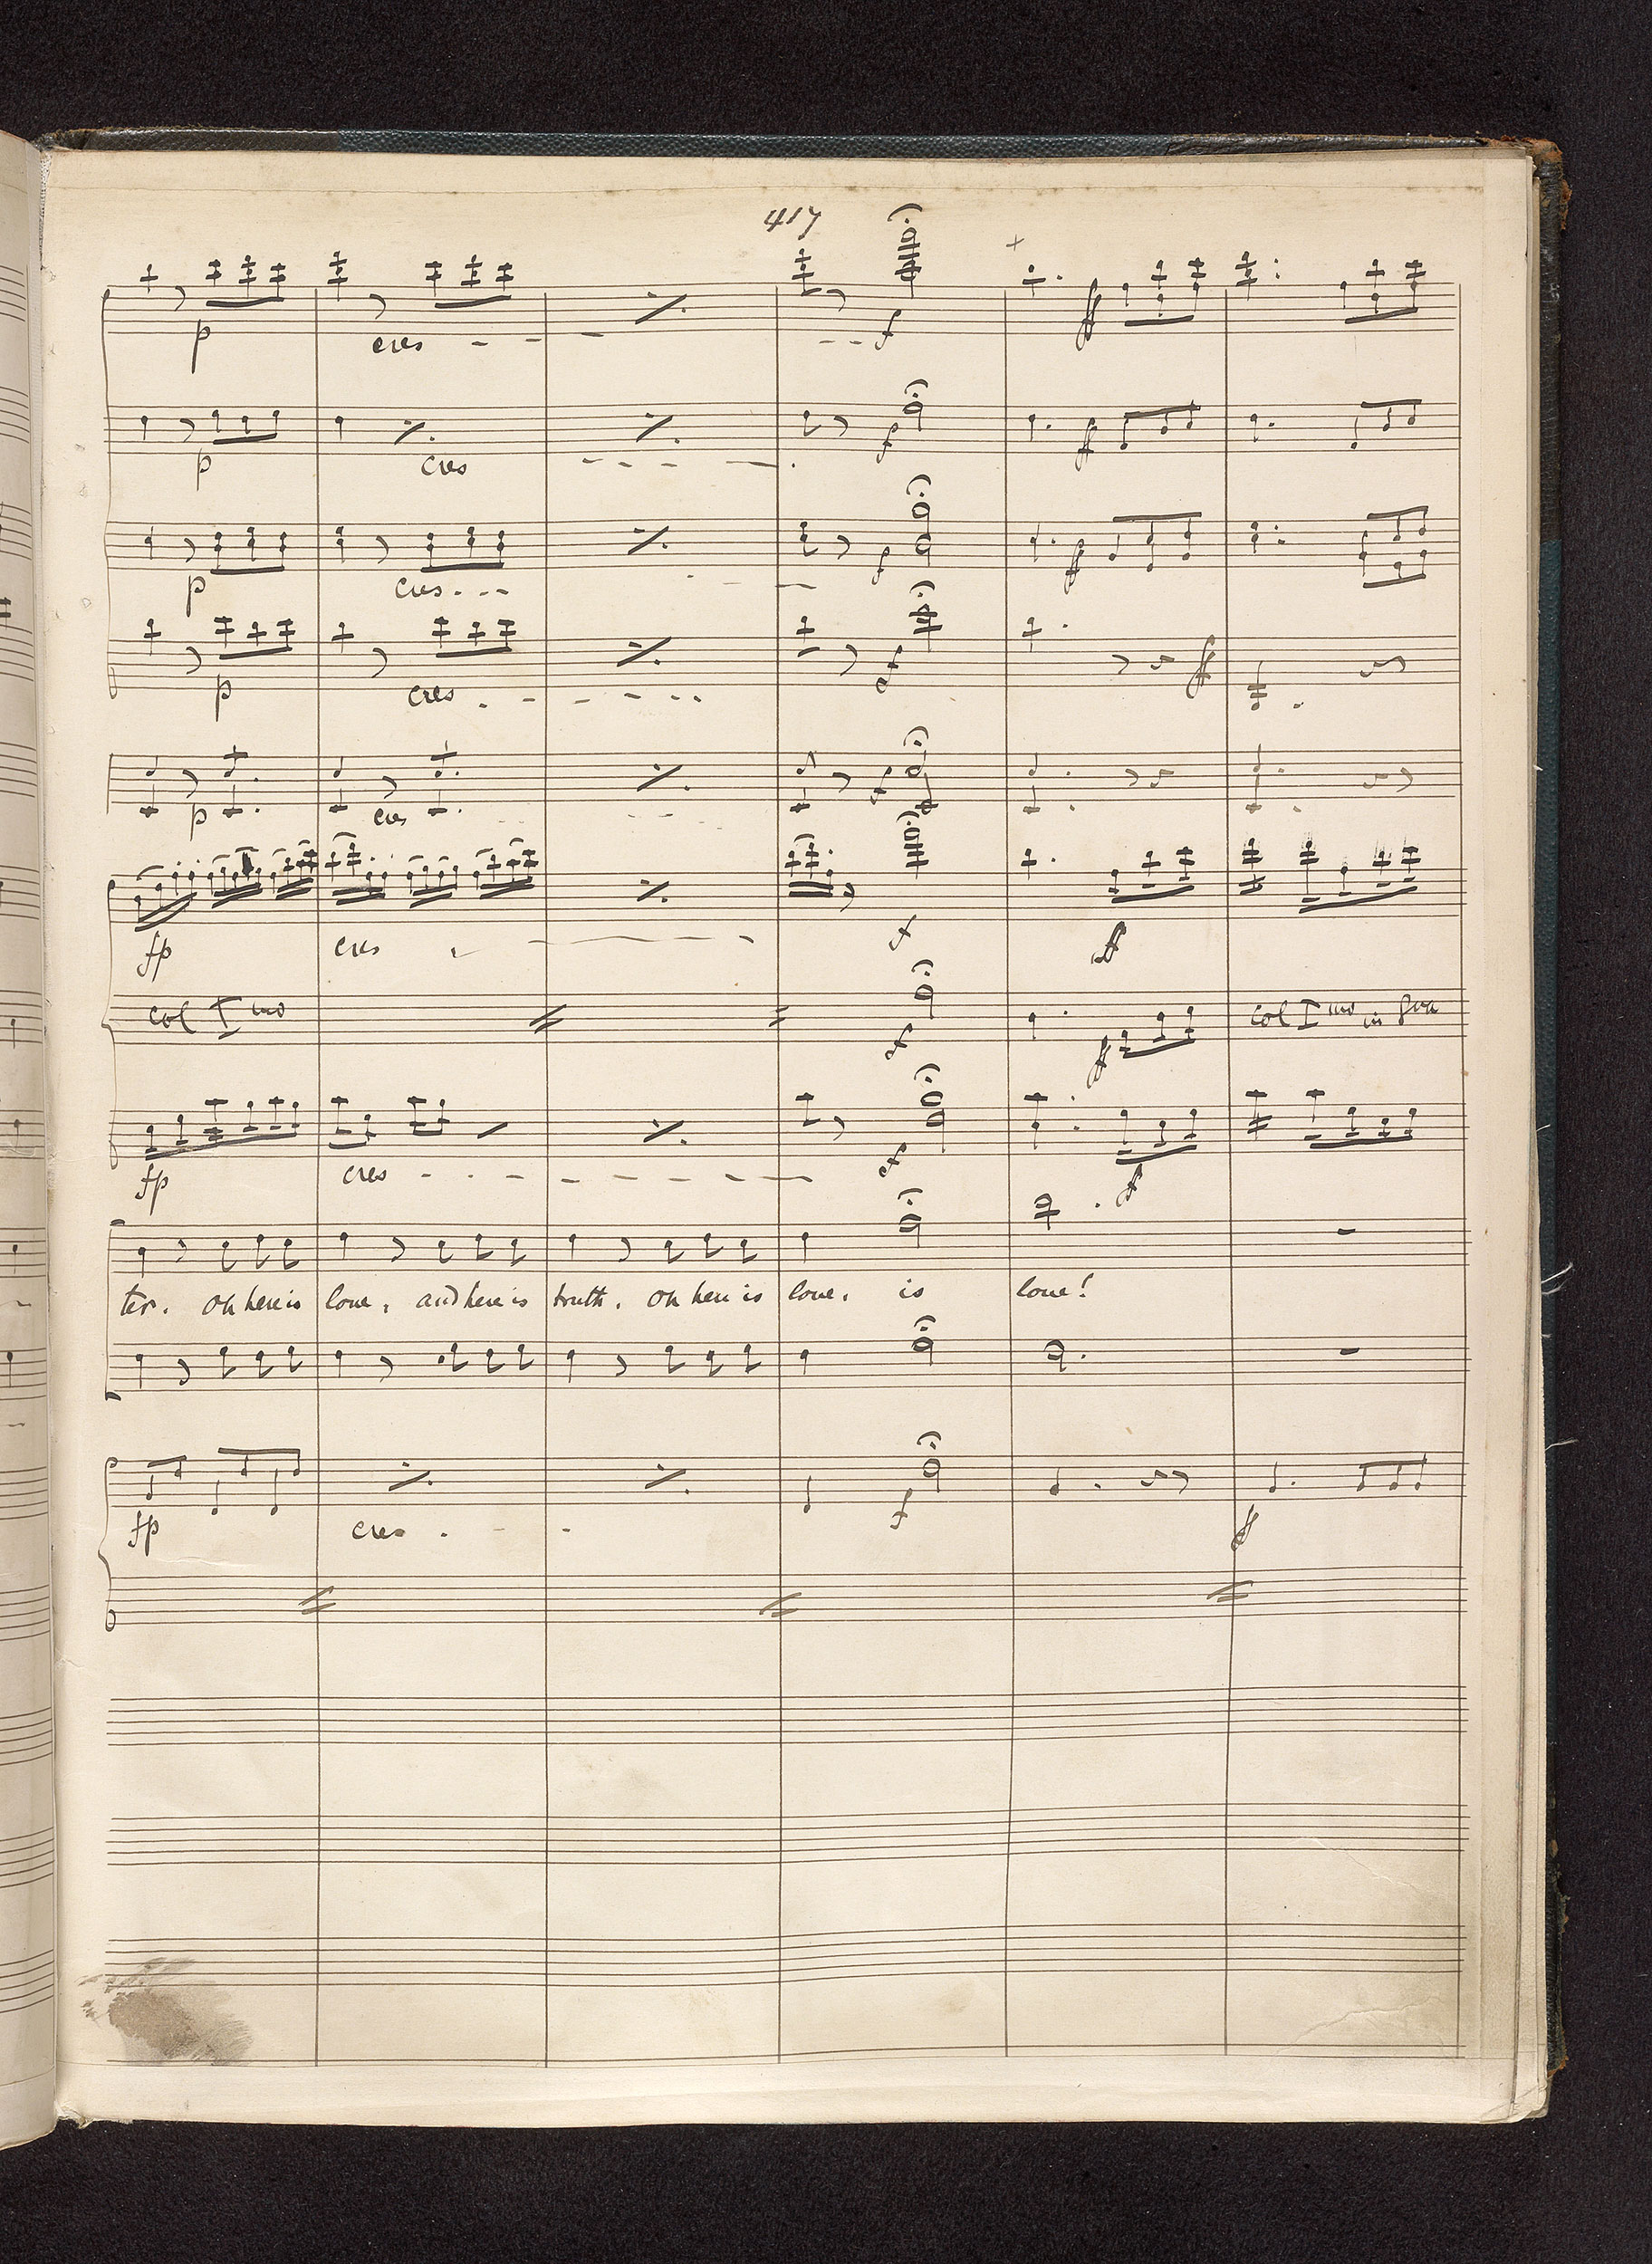 417
p cres f ff
p cres f ff
p cres f ff
p cres f ff
p cres f
fp cres f ff
col Imo f ff col Imo in 8va
fp cres f ff
ter. oh here is love, and here is truth. oh here is love, is love!
fp cres f ff